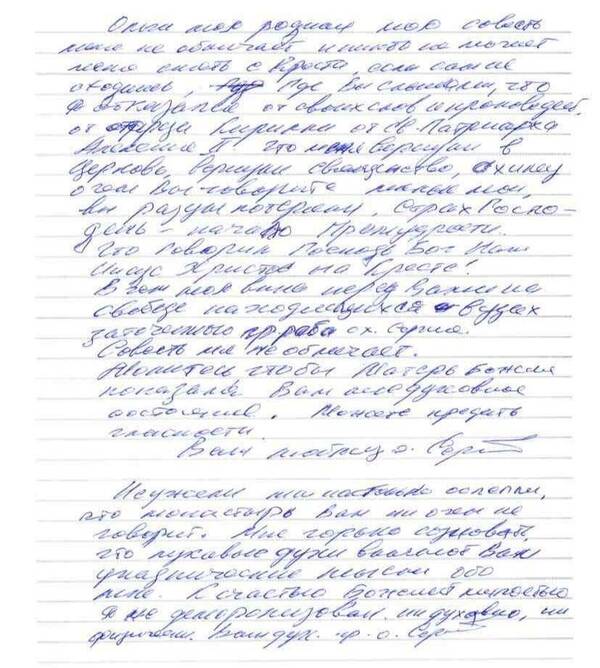 Ольги моя родная мою совесть
меня не обличает и никто не может
меня снять с Креста, если сам не
Где Вы слышали, что
я отказался от своих слов и проповедей,
от Кирилла от Св. Патриарха
Алексия II что меня вернули в
Церковь, вернули священство, схиму
о чем Вы говорите милые мои,
вы разум потеряли. Страх Госпо-
день - начало Премудрости.
Что говорил Господь Бог Наш
Иисус Христос на Кресте!
В чем моя вина перед Вами на
свободе находящихся в узах
заточенного раба сх. Сергия.
Совесть мя не обличает.
Молитесь чтобы Матерь Божия
показала Вам мое духовное
состояние. Можете предать
гласности.
Ваш о. Серг
Неужели мы настолько ослепли,
что монастырь Вам ни о чем не
говорит. Мне горько сознавать,
что лукавые духи влагают Вам
мысли обо
мне. К счастью Божией милостью
я не деморализован ни духовно, ни
физически. Ваш дух. о. Серг